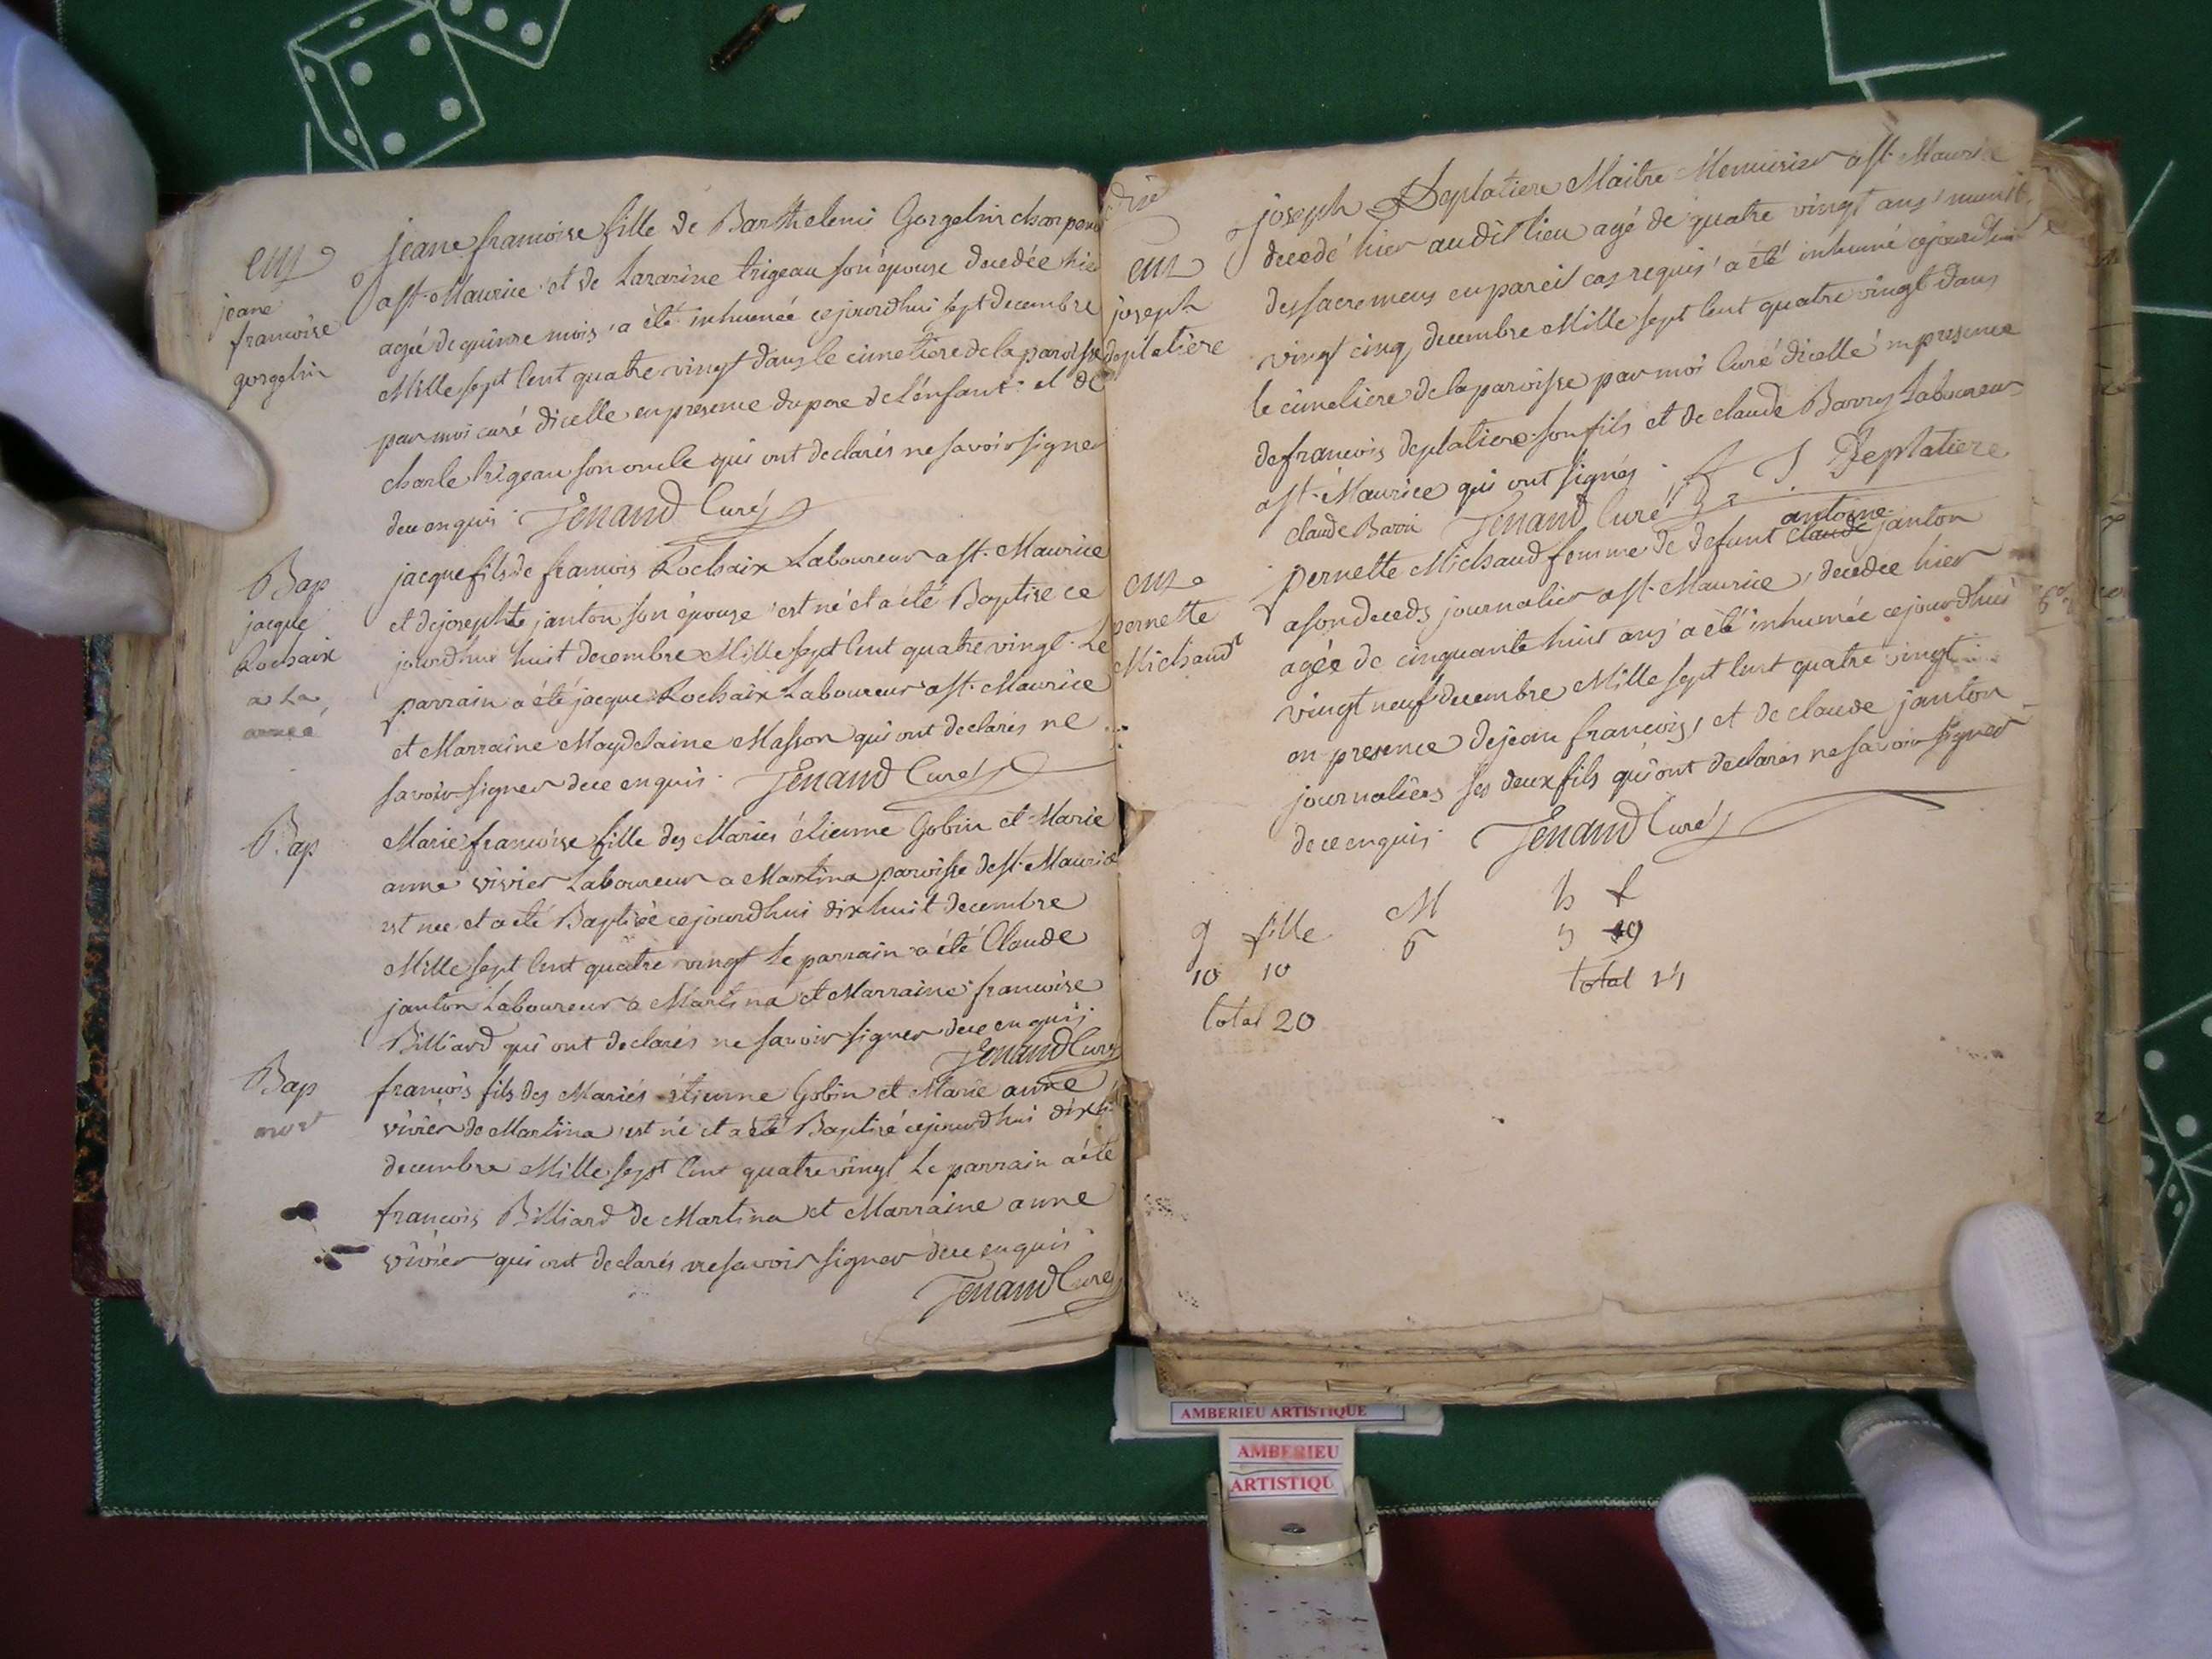 ent
jeane
francoise
gorgelin
jeane francoise fille de Barthelemi Gorgelin charpen
a st. Maurice et de Lazarine trigeau son épouse decedée hier
agée de quinse mois a été inhumée cejourdhui sept decembre
Mille sept Cent quatre vingt dans le cimetiere de la paroisse
par moi curé dicelle en presence du pere de L'enfant et de
charle trigeau son oncle qui ont declarés ne savoir signer
dece enquis. Tenand Curé
Bap
jacque
Rochaix
a La
armée
jacque fils de francois Rochaix Laboureur a st. Maurice
et de josephte janton son épouse est né et a été Baptise ce
jourdhui huit decembre Mille sept Cent quatre vingt. Le
parrain a été jacque Rochaix Laboureur a st. Maurice
et Marraine Maydelaine Masson qui ont declarés ne
savoir signer dece enquis. Tenand Curé
Bap
Marie francoise fille des Mariés étienne Gobin et Marie
anne vivier Laboureur a Martina paroisse de st. Maurice
est nee et a été Baptisée cejourdhui dix huit decembre
Mille sept Cent quatre vingt Le parrain a été Claude
janton Laboureur a Martina et Marraine francoise
Billiard qui ont declarés ne savoir signer dece enquis.
Tenand Curé
Bap
mort
francois fils des Mariés étienne Gobin et Marie anne
vivier de Martina est né et a été Baptisé cejourdhui dix h
decembre Mille sept Cent quatre vingt Le parrain a été
francois Billiard de Martina et Marraine anne
vivier qui ont declarés ne savoir signer dece enquis
Tenand Curé
ent
joseph
deplatiere
joseph Deplatiere Maitre Menuisier a st. Maurice
decedé hier audit lieu agé de quatre vingt ans munit
des sacremens en pareil cas requis a été inhumé cejourdhui
vingt cinq decembre Mille sept Cent quatre vingt dans
le cimetiere de la paroisse par moi Curé dicelle en presence
de francois deplatiere son fils et de claude Barry Laboureur
a st. Maurice qui ont signés. f J Deplatiere
claude Barri Tenand Curé
ent
pernette
Michaud
antoine
pernette Michaud femme de defunt claude janton
a son deceds journalier a st. Maurice, decedee hier
agée de cinquante huit ans a été inhumée cejourdhui
vingt neuf decembre Mille sept Cent quatre vingt
en presence de jean francois, et de claude janton
journaliers ses deux fils qui ont declarés ne savoir signer
dece enquis. Tenand Curé
g fille M h f
10 10 6 5 19
total 20 total 24
AMBERIEU ARTISTIQUE
AMBERIEU
ARTISTIQU